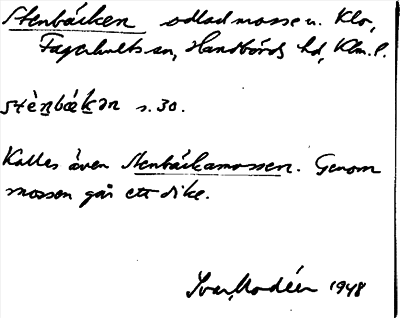 Stenbäcken odlad mosse u. Klo,
Fagerhults sn, Handbörds hd, Klm. l.
stèn̲bäk̲ən s. 30.
Kallas även Stenbäckamossen. Genom
mossen går ett dike.
Ivar Modéer 1948